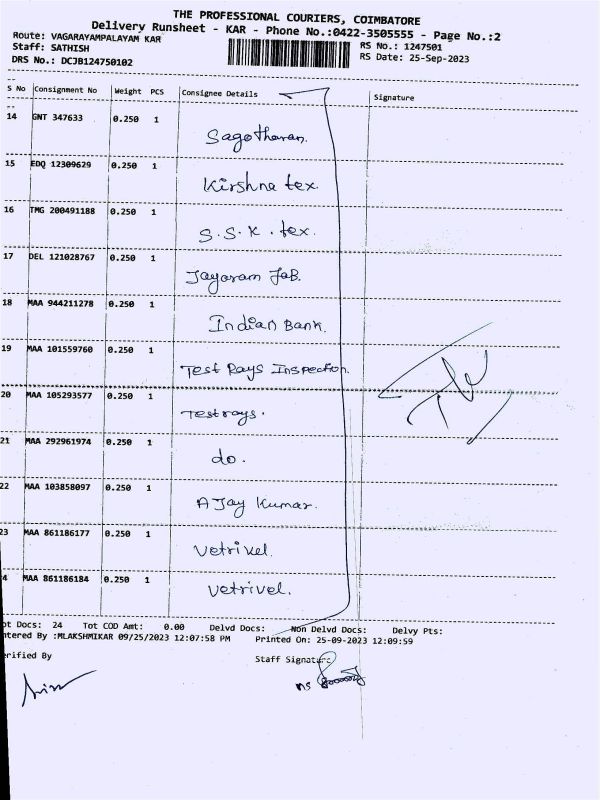 THE PROFESSIONAL COURIERS, COIMBATORE
Delivery Runsheet - KAR - Phone No.:0422-3505555 - Page No.:2
Route: VAGARAYAMPALAYAM KAR
Staff: SATHISH RS No.: 1247501
DRS No.: DCJB124750102 RS Date: 25-Sep-2023
S No Consignment No Weight PCS Consignee Details Signature
14 GNT 347633 0.250 1
Sagotharan.
15 EDQ 12309629 0.250 1
Kirshna tex.
16 TMG 200491188 0.250 1
S.S.K. tex.
17 DEL 121028767 0.250 1
Jayaram FaB.
18 MAA 944211278 0.250 1
Indian Bank.
19 MAA 101559760 0.250 1
Test Rays Inspection.
20 MAA 105293577 0.250 1
Testrays.
21 MAA 292961974 0.250 1
do.
22 MAA 103858097 0.250 1
AJay Kumar.
23 MAA 861186177 0.250 1
Vetrivel.
4 MAA 861186184 0.250 1
Vetrivel.
ot Docs: 24 Tot COD Amt: 0.00 Delvd Docs: Non Delvd Docs: Delvy Pts:
ntered By :MLAKSHMIKAR 09/25/2023 12:07:58 PM Printed On: 25-09-2023 12:09:59
erified By Staff Signature